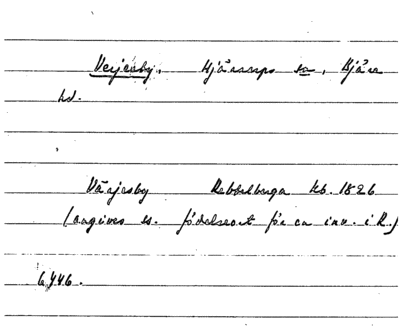 Vejesby, Hjärnarps sn, Bjäre
hd.
Väjesby Rebbelberga kb. 1826
(angives ss. födelseort för en inv. i R.)
6446.